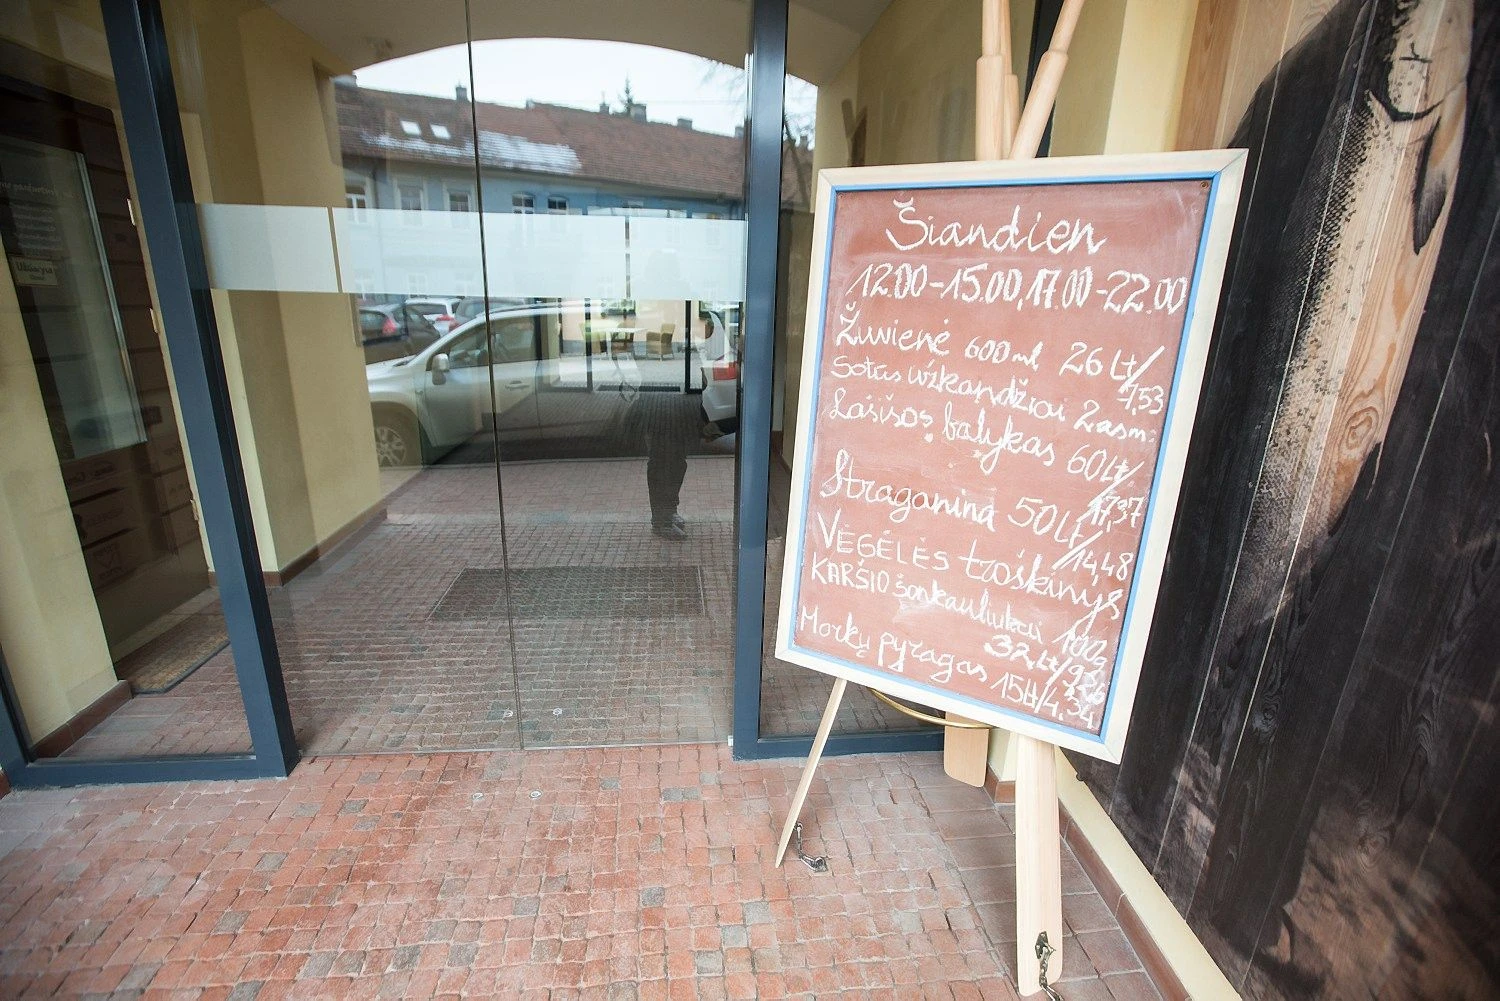 Šiandien
12.00-15.00, 17.00-22.00
Žuvienė 600ml 26 Lt/
7,53
Sotus užkandžiai 2 asm.
Lašišos balykas 60 Lt/
17,37
Straganina 50 Lt/
14,48
VĖGĖLĖS troškinys
KARŠIO šonkauliukai 100g
32 Lt/9,26
Morkų pyragas 15 Lt/4,34